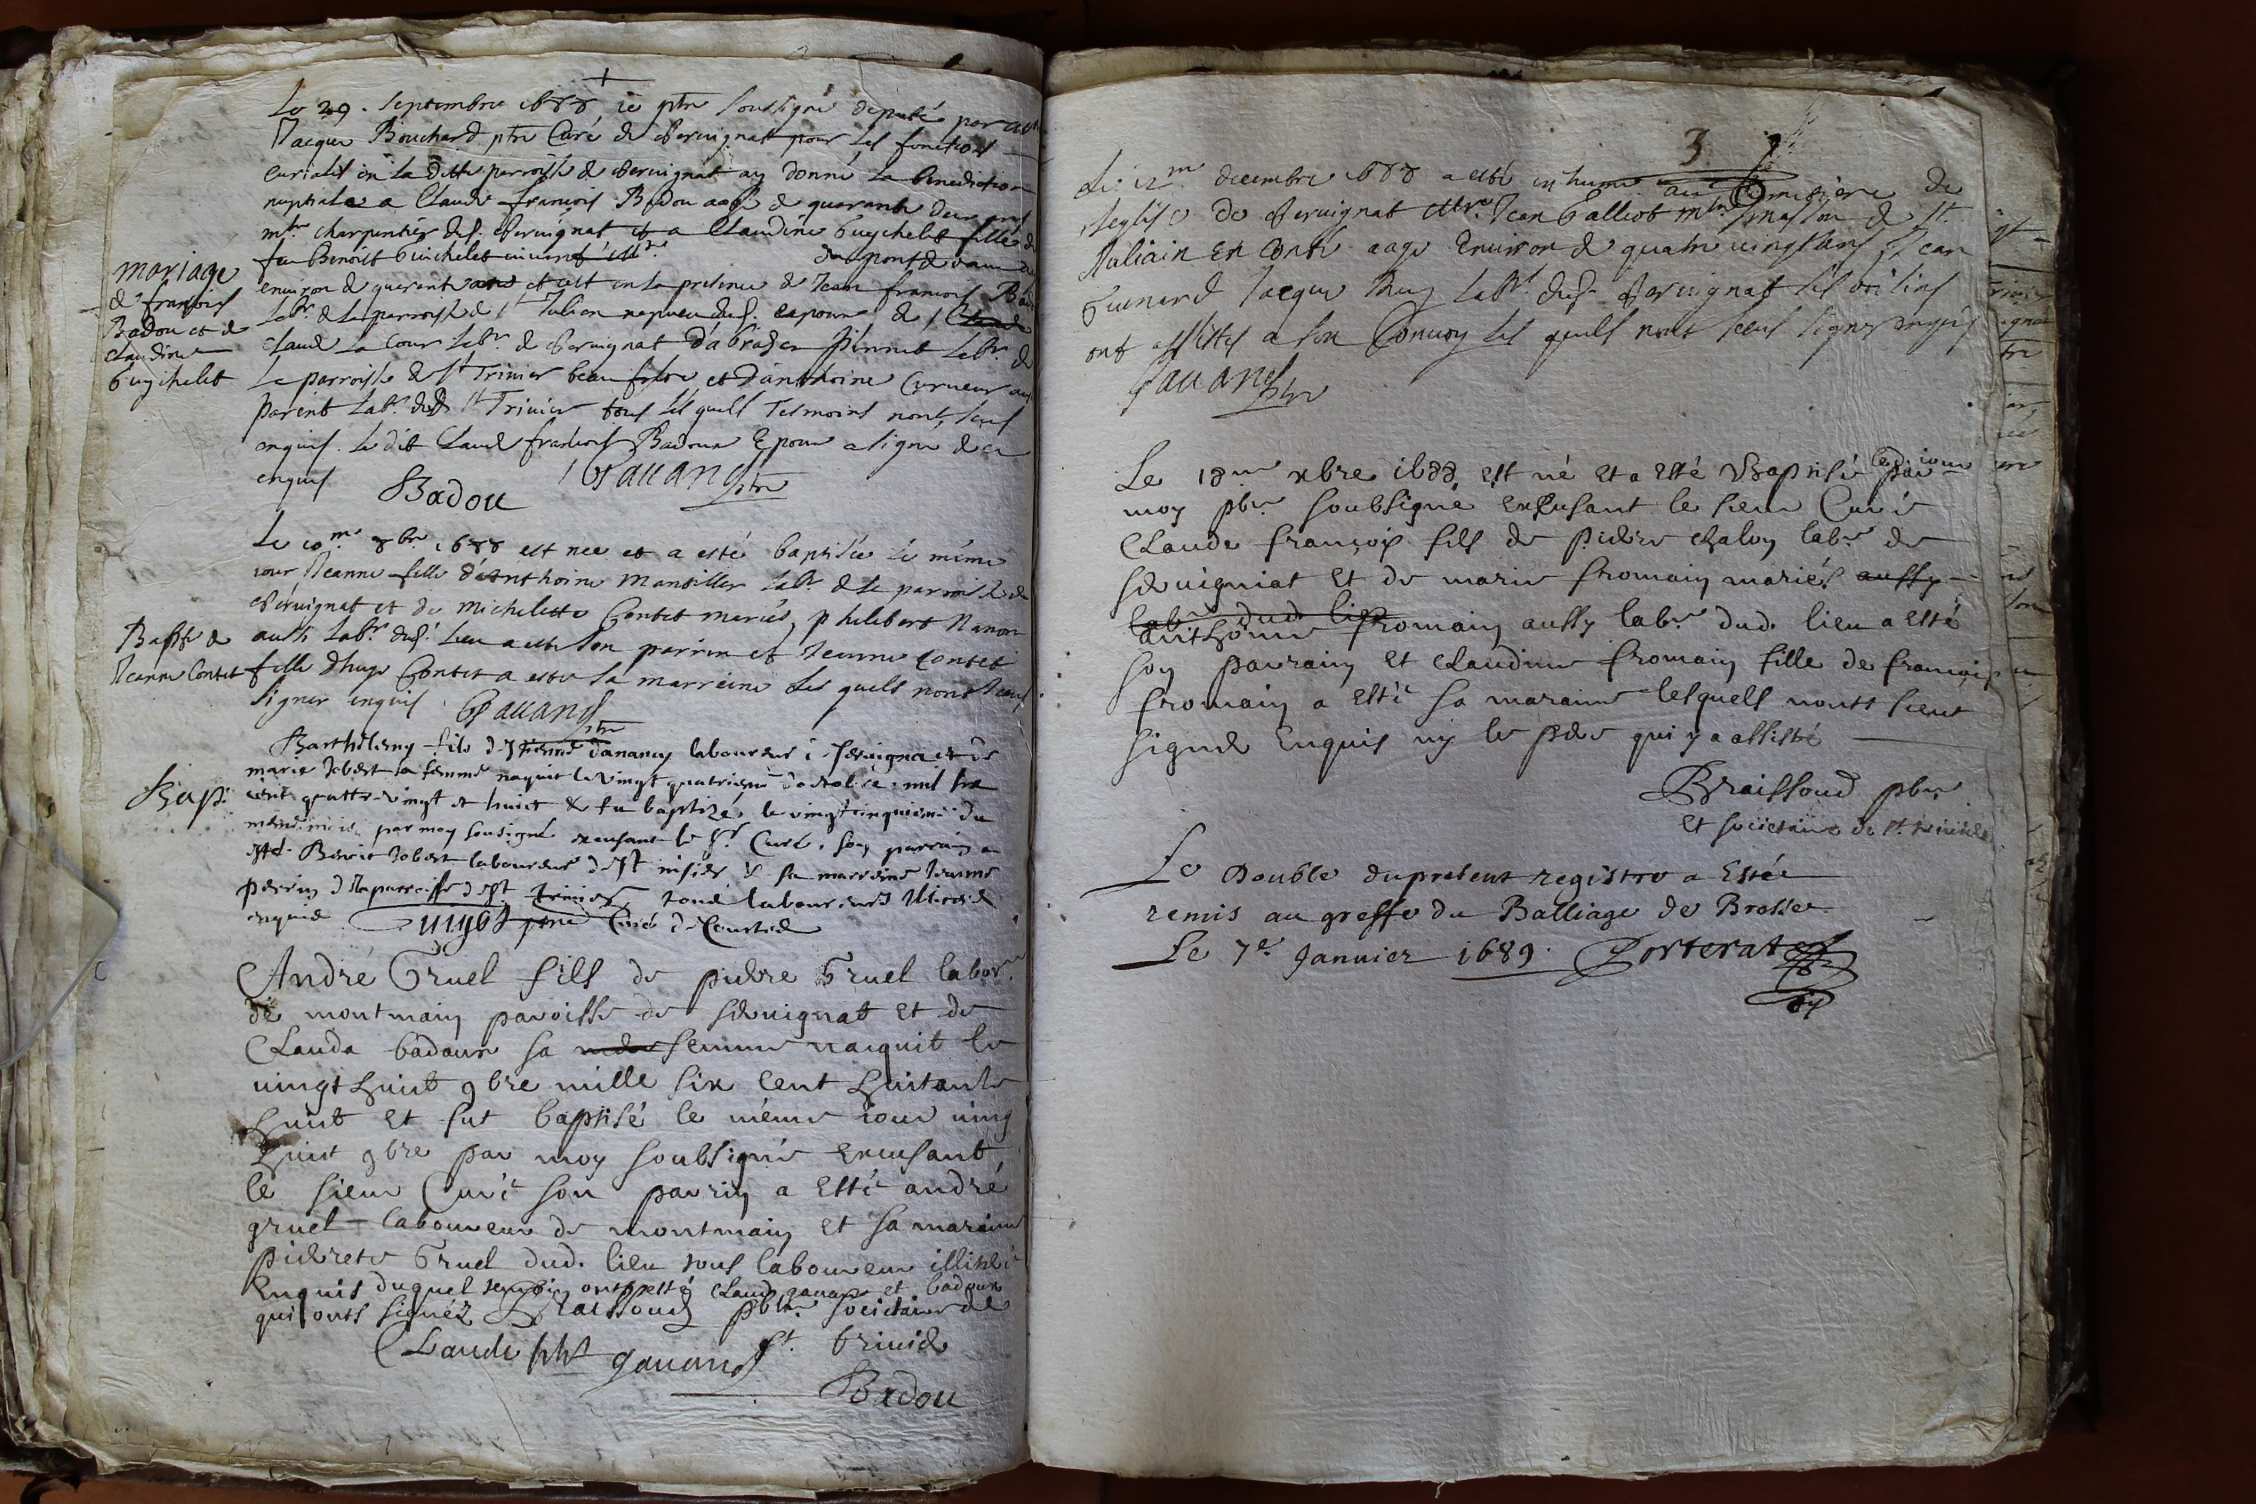 Le 29. Septembre 1688 ie ptre soussigné deputé par
Jacque Bouchard ptre Curé de Servignat pour les fonctions
curiales en la ditte parroisse de Servignat ay donné la benediction
nuptiale a Claude françois Badou aagé de quarante deux ans
mtre charpentier dud. Servignat et a Claudine Guychelet fille de
feu Benoist Guichelet du pont de vaux
environ de quarent ans et cest en la presence de Jean françois
Labr. de la parroisse de St Julien nepveu dud. espoux de
Claude La Cour Labr. de Servignat Pinnet Labr. de
La parroisse de St Trivier beau frere et d'anthoine Curveur
parent Labr. dud. St Trivier tous les quels Tesmoins nont sceus
enquis. Le dit Claude françois Badoux Epoux a signé de ce
enquis Badou Gavand ptre
mariage
de françois
Badou et de
claudine
Guychelet
Le 10me 8bre 1688 est nee et a esté baptisée le même
iour Jeanne fille d'Anthoine Mantillier Labr. de la parroisse de
Servignat et de Michelette Contet mariés, philibert Nanon
aussi Labr. dud. Lieu a esté son parrin et Jeanne Contet
fille d'hugo Contet a esté sa marreine Les quels nont sceus
signer enquis Gavand ptre
Bapt. de
Jeanne Contet
Barthelemy fils d'Estienne danancy laboureur à Servigna et de
marie Jobert sa femme naquit le vingt quatrieme d'octobre mil six
cent quattre-vingt et huict & fu baptizé le vingt cinquieme du
mesme mois par moy sousigné excusant le Sr Curé, son parrain a
esté Benoit Jobert laboureur de St nisier & sa marreine Jeanne
perrin de la parroisse de St trivier, tous laboureurs illiteré
enquis Curé de Courtes
Bap.
André Gruel fils de pierre Gruel labor.
de montmain paroisse de servignat et de
Clauda badoux sa femme nacquit le
vingt huict 9bre mille six cent huitante
huict et fut baptisé le même iour ving
huict 9bre par moy soubsigné excusant
le sieur Curé son parrin a esté andré
gruel laboureur de montmain et sa maraine
pierrete Gruel dud. lieu tous laboureur illiteré
Enquis duquel ont esté Claude gavand et badoux
qui onts signéz Braissoud pbtre societaire de
St. trivier
Claude phi gavand
Badou
3
Le 12me decembre 1688 a esté inhumé au Cimetiere de
leglise de Servignat Mtre Jean Galliot mtre masson de St
Juliain En Conté aagé Environ de quatre vingts ans, Jean
Guenard Jacque Labr. dud. Servignat ses voisins
ont assistés a son Convoy les quels nont sceus signer enquis
Gavand ptre
Le 18me xbre 1688 est né et a esté Baptisé led. iour par
moy pbre soubsigné excusant le sieur Curé
Claude françois fils de pierre chalon labr de
servigniat et de marie fromain mariés aussy
labr dud. lieu
anthoine fromain aussy labr dud. lieu a esté
son parrain et claudine fromain fille de françois
fromain a esté sa maraine lesquels nonts sceut
signer enquis ny le pere qui y a assisté
Braissoud pbre
et societaire de St. trivier
Le Double du present registre a Estée
remis au greffe du Balliage de Bresse
Le 7e Janvier 1689. Porterat